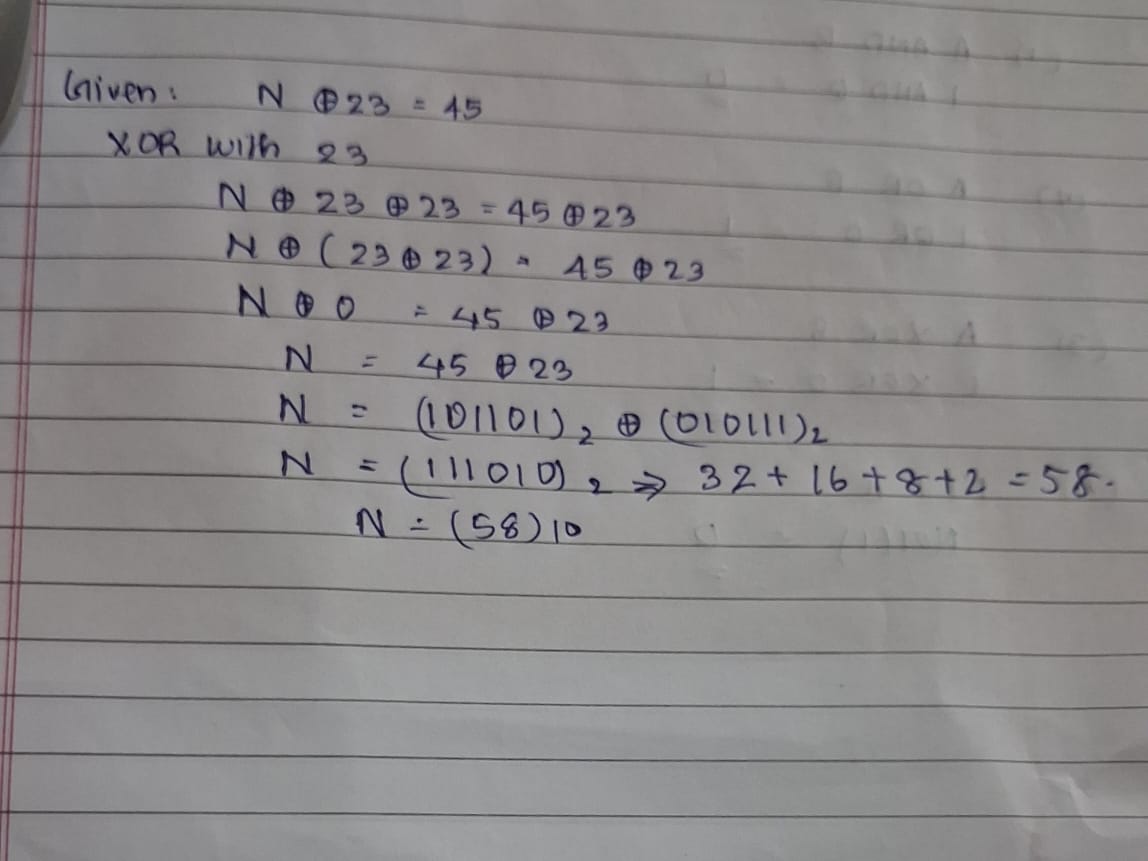 Given: N ⊕ 23 = 45
XOR with 23
N ⊕ 23 ⊕ 23 = 45 ⊕ 23
N ⊕ (23 ⊕ 23) = 45 ⊕ 23
N ⊕ 0 = 45 ⊕ 23
N = 45 ⊕ 23
N = (101101)₂ ⊕ (010111)₂
N = (111010)₂ ⇒ 32 + 16 + 8 + 2 = 58.
N = (58)10